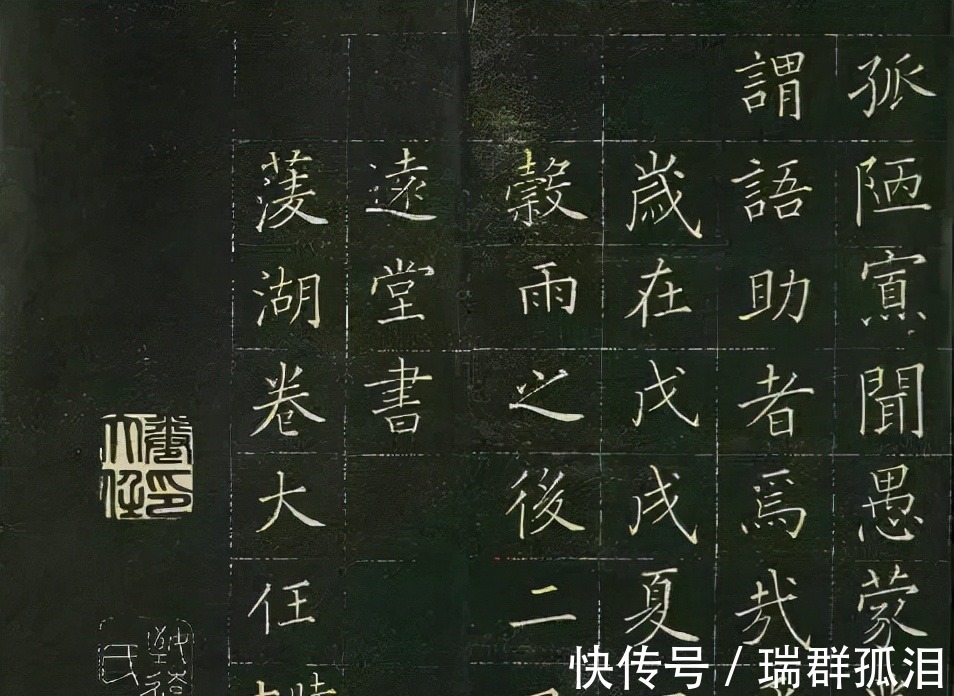 孤陋寡聞愚蒙
謂語助者焉哉
歲在戊戌夏
穀雨之後二
遠堂書
湖卷大任
快传号 / 瑞群孤泪